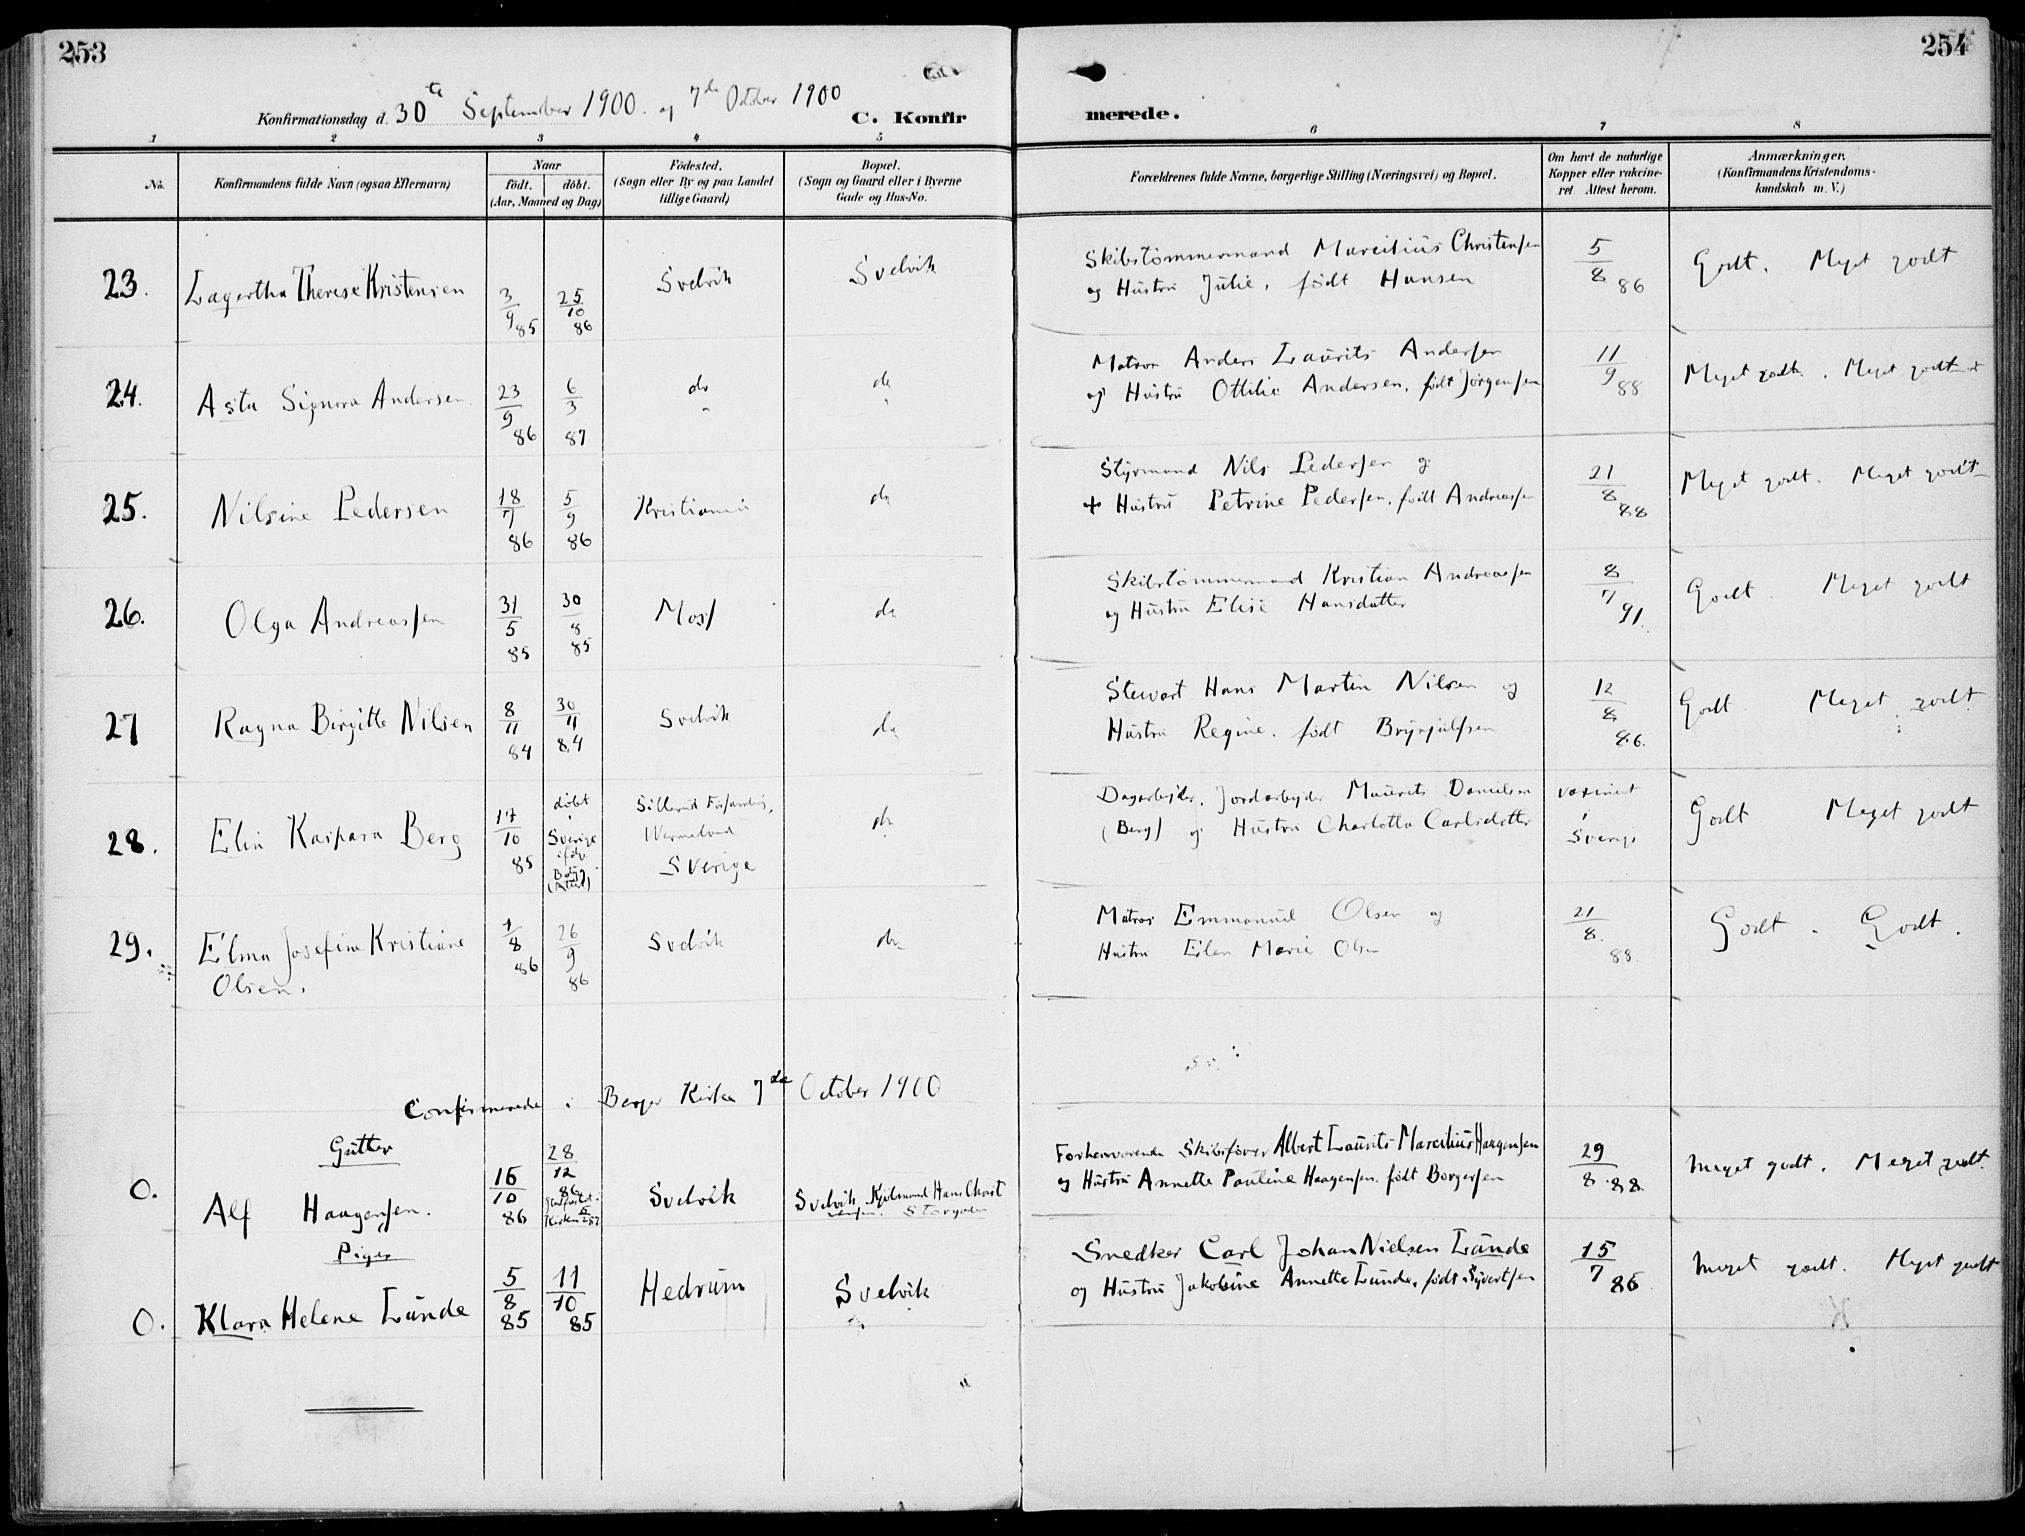 253
254
Konfirmationsdag d. 30te September 1900. og 7de October 1900
C. Konfir
merede.
1 2 3 4 5 6 7 8
No.
Konfirmandens fulde Navn (ogsaa Efternavn)
Naar
født. døbt.
(Aar, Maaned og Dag)
Fødested.
(Sogn eller By og paa Landet
tillige Gaard)
Bopæl.
(Sogn og Gaard eller i Byerne
Gade og Hus-No.
Forældrenes fulde Navne, borgerlige Stilling (Næringsvei) og Bopæl.
Om havt de naturlige
Kopper eller vakcine-
ret Attest herom.
Anmærkninger.
(Konfirmandens Kristendoms-
kundskab m. V.)
23. Lagertha Therese Kristensen 3/9 85 25/10 86 Svelvik Svelvik
Skibstømmermand Marcilius Christensen
og Hustru Julie, født Hansen
5/8 86 Godt. Meget godt
24. Asta Signora Andersen 23/9 86 6/3 87 do do
Matros Anders Laurits Andersen
og Hustru Ottilie Andersen, født Jørgensen
11/9 88 Meget godt. Meget godt
25. Nilsine Pedersen 18/7 86 5/9 86 Kristiania do
Styrmand Nils Pedersen og
+ Hustru Petrine Pedersen, født Andreassen
21/8 88 Meget godt. Meget godt
26. Olga Andreassen 31/5 85 30/8 85 Moss do
Skibstømmermand Kristian Andreassen
og Hustru Elise Hansdatter
8/7 91. Godt. Meget godt
27 Ragna Birgitte Nilsen 8/11 84 30/11 84 Svelvik do
Stewart Hans Martin Nilsen og
Hustru Regine, født Brynjulfsen
12/8 86. Godt. Meget godt
28. Elin Kaspara Berg 17/10 85 døbt i Sverige
Wermeland
Sverige do
Dagarbejder, Jordarbejder Maurits Danielsen
(Berg) og Hustru Charlotta Carlsdatter
i Sverige Godt Meget godt
29. Elma Josefine Kristiane
Olsen. 1/8 86 26/9 86 Svelvik do
Matros Emmanuel Olsen og
Hustru Elen Marie Olsen
21/8. 88. Godt. Godt.
Confirmerede i Berger Kirke 7de October 1900
Gutter
0. Alf Haagensen. 16/10 86 28/12 86 Svelvik Svelvik
Forhenværende Skibsfører Albert Laurits Marcilius Haagensen
og Hustru Annette Pauline Haagensen. født Borgersen
29/8 88. Meget godt. Meget godt.
Piger
0. Klara Helene Lunde 5/8 85 11/10 85 Hedrum Svelvik
Snedker Carl Johan Nielsen Lunde
og Hustru Jakobine Annette Lunde, født Syvertsen
15/7 86 Meget godt. Meget godt